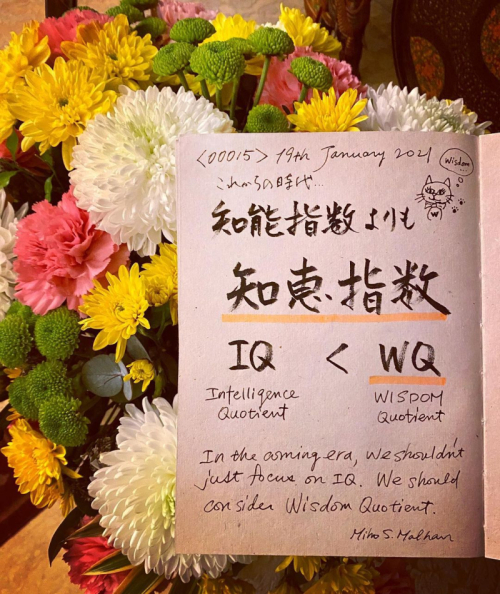 <00015> 19th January 2021
Wisdom
これからの時代...
知能指数よりも
知恵指数
IQ < WQ
Intelligence Quotient
WISDOM Quotient
In the coming era, we shouldn't
just focus on IQ. We should
consider Wisdom Quotient.
Miho S. Malhan
W